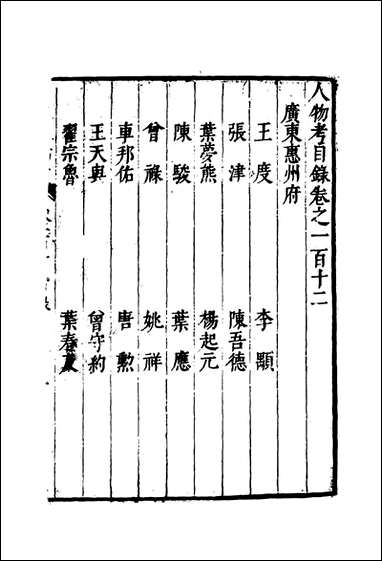 人物考目錄卷之一百十二
廣東惠州府
王度 李顒
張津 陳吾德
葉夢熊 楊起元
陳駿 葉應
曾祿 姚祥
車邦佑 唐勲
王天與 曾守約
翟宗魯 葉春